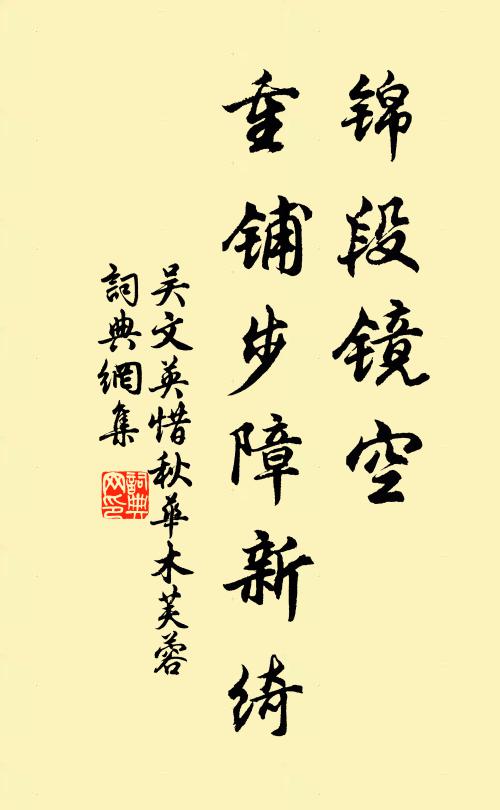 锦段镜空
重铺步障新绮
吴文英惜秋华木芙蓉
詞典網集
詞典
网印